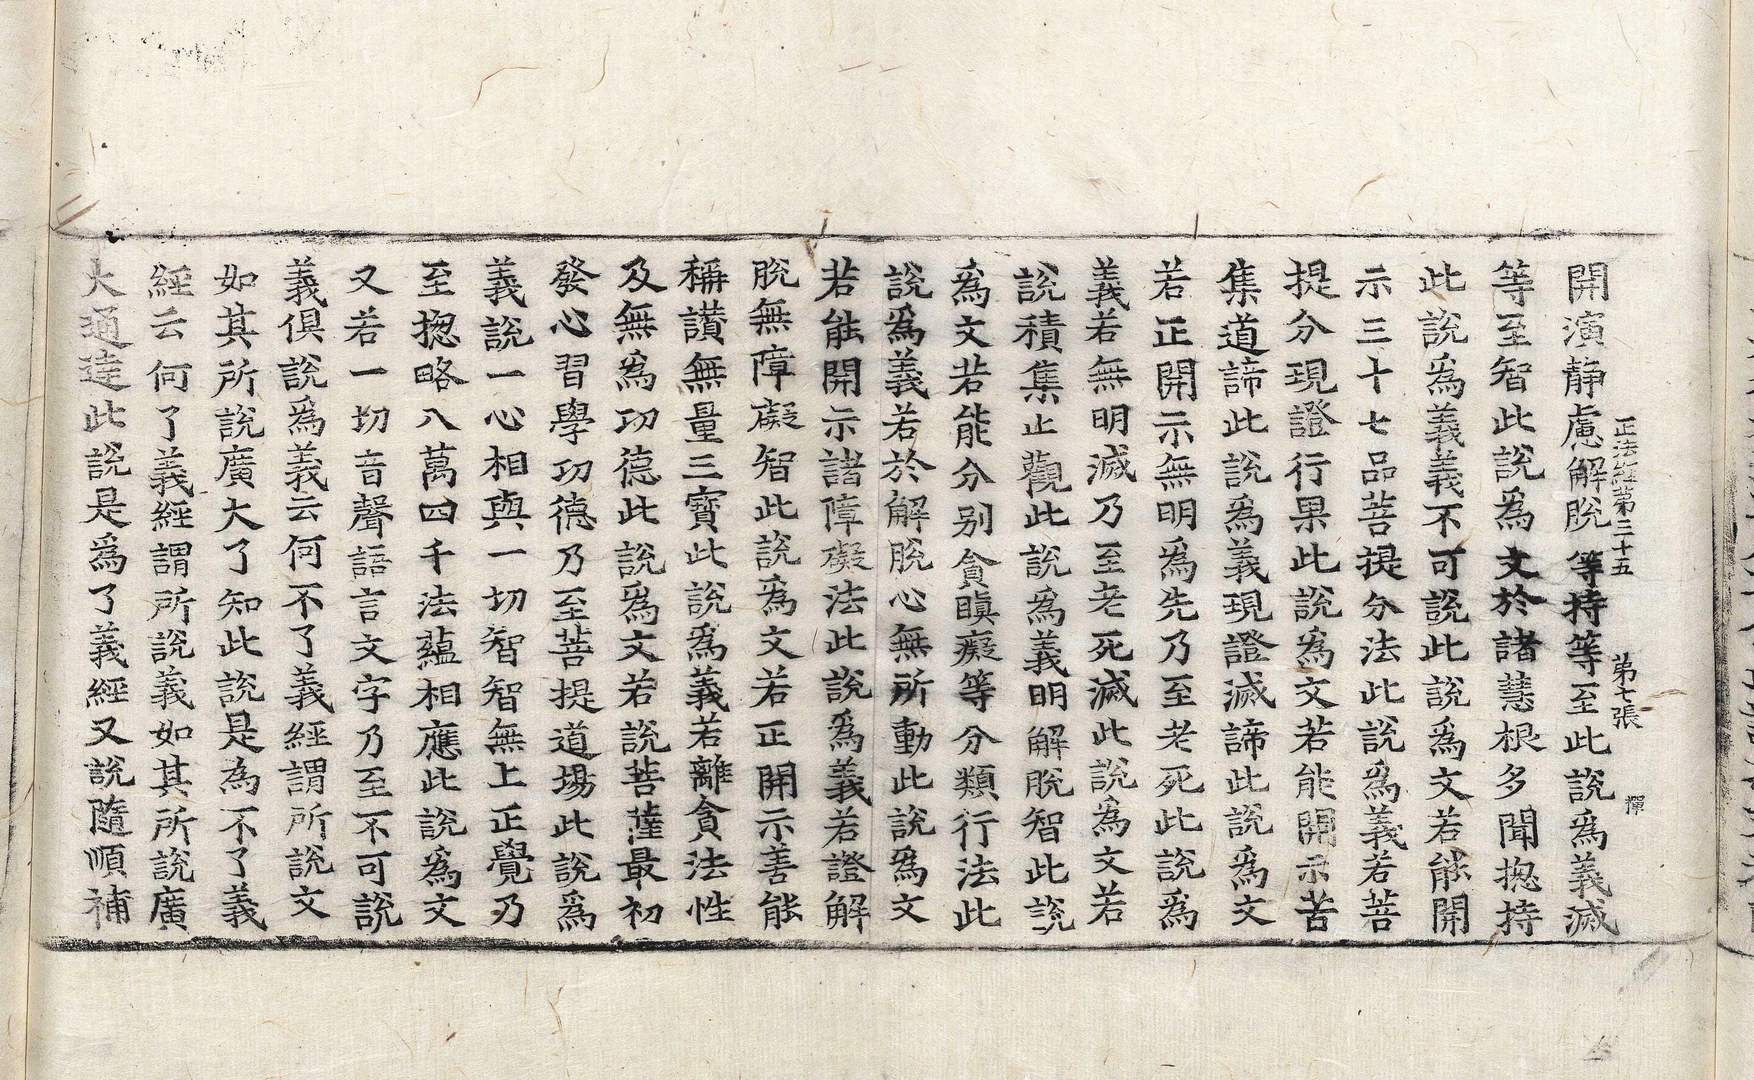 正法經第三十五 第七張 揮
開演靜慮解脫等持等至此說爲義滅
等至智此說爲文於諸慧根多聞揔持
此說爲義義不可說此說爲文若能開
示三十七品菩提分法此說爲義若菩
提分現證行果此說爲文若能開示苦
集道諦此說爲義現證滅諦此說爲文
若正開示無明爲先乃至老死此說爲
義若無明滅乃至老死滅此說爲文若
說積集止觀此說爲義明解脫智此說
爲文若能分別貪瞋癡等分類行法此
說爲義若於解脫心無所動此說爲文
若能開示諸障礙法此說爲義若證解
脫無障礙智此說爲文若正開示善能
稱讚無量三寶此說爲義若離貪法性
及無爲功德此說爲文若說菩薩最初
發心習學功德乃至菩提道場此說爲
義說一心相與一切智智無上正覺乃
至揔略八萬四千法蘊相應此說爲文
又若一切音聲語言文字乃至不可說
義俱說爲義云何不了義經謂所說文
如其所說廣大了知此說是為不了義
經云何了義經謂所說義如其所說廣
大通達此說是爲了義經又說隨順補